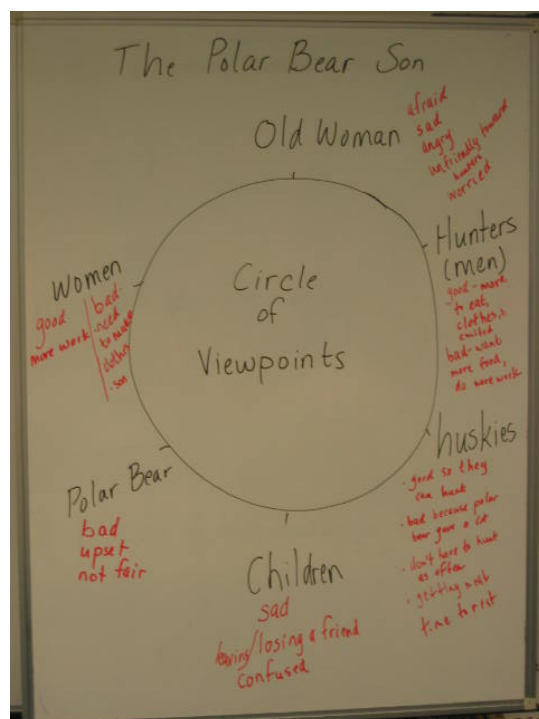 The Polar Bear Son
Old Woman
afraid
sad
angry
unfriendly toward
hunters
worried
Hunters
(men)
good - more
to eat,
clothes,
excited
bad - want
more food,
do more work
huskies
· good so they
can hunk
· bad because polar
bear gave a lot
· don't have to hunt
as often
· getting
time to rest
Children
sad
leaving/losing a friend
confused
Polar Bear
bad
upset
not fair
Women
good
more work
bad
need
to make
clothes
son
Circle
of
Viewpoints